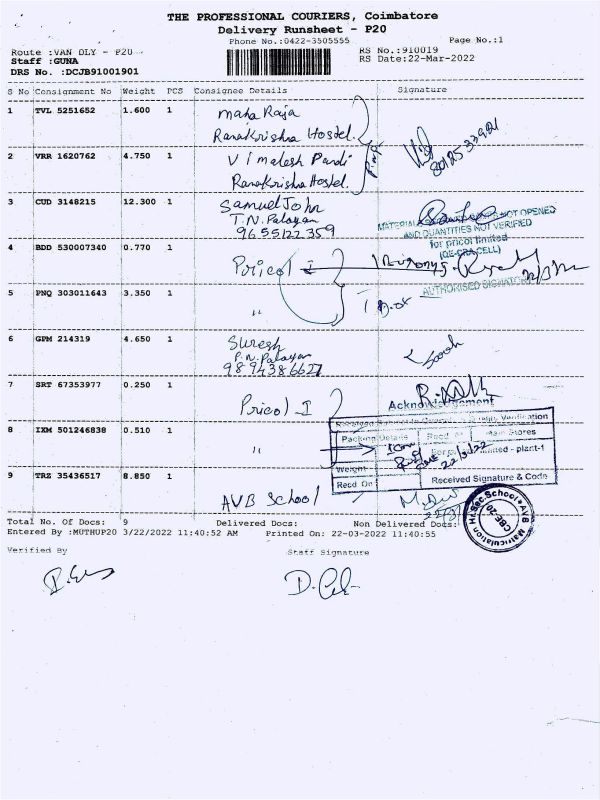 THE PROFESSIONAL COURIERS, Coimbatore
Delivery Runsheet - P20
Phone No.:0422-3505555
Page No.:1
Route :VAN DLY - P20
Staff :GUNA
DRS No. :DCJB91001901
RS No.:910019
RS Date:22-Mar-2022
S No Consignment No Weight PCS Consignee Details Signature
1 TVL 5251652 1.600 1 Maha Raja
Ramakrishna Hostel.
2 VRR 1620762 4.750 1 Vimalesh Pandi
Ramakrishna Hostel.
3 CUD 3148215 12.300 1 Samuel John
T.N. Palayam
9655122359
MATERIAL NOT OPENED
AND QUANTITIES NOT VERIFIED
for pricol limited
AUTHORISED SIGNATORY
4 BDD 530007340 0.770 1 Pricol I
5 PNQ 303011643 3.350 1 "
6 GPM 214319 4.650 1 Suresh
P.N. Palayam
9894386627
7 SRT 67353977 0.250 1 Pricol I
Acknowledgement
8 IXM 501246838 0.510 1 "
Verification
Packing Details Main Stores
Limited - plant-1
Weight 22/3/22
Recd On Received Signature & Code
9 TRZ 35436517 8.850 1 AVB School
AVB Matriculation Hr.Sec.School
CBE-20
Total No. Of Docs: 9 Delivered Docs: Non Delivered Docs:
Entered By :MUTHUP20 3/22/2022 11:40:52 AM Printed On: 22-03-2022 11:40:55
Verified By Staff Signature